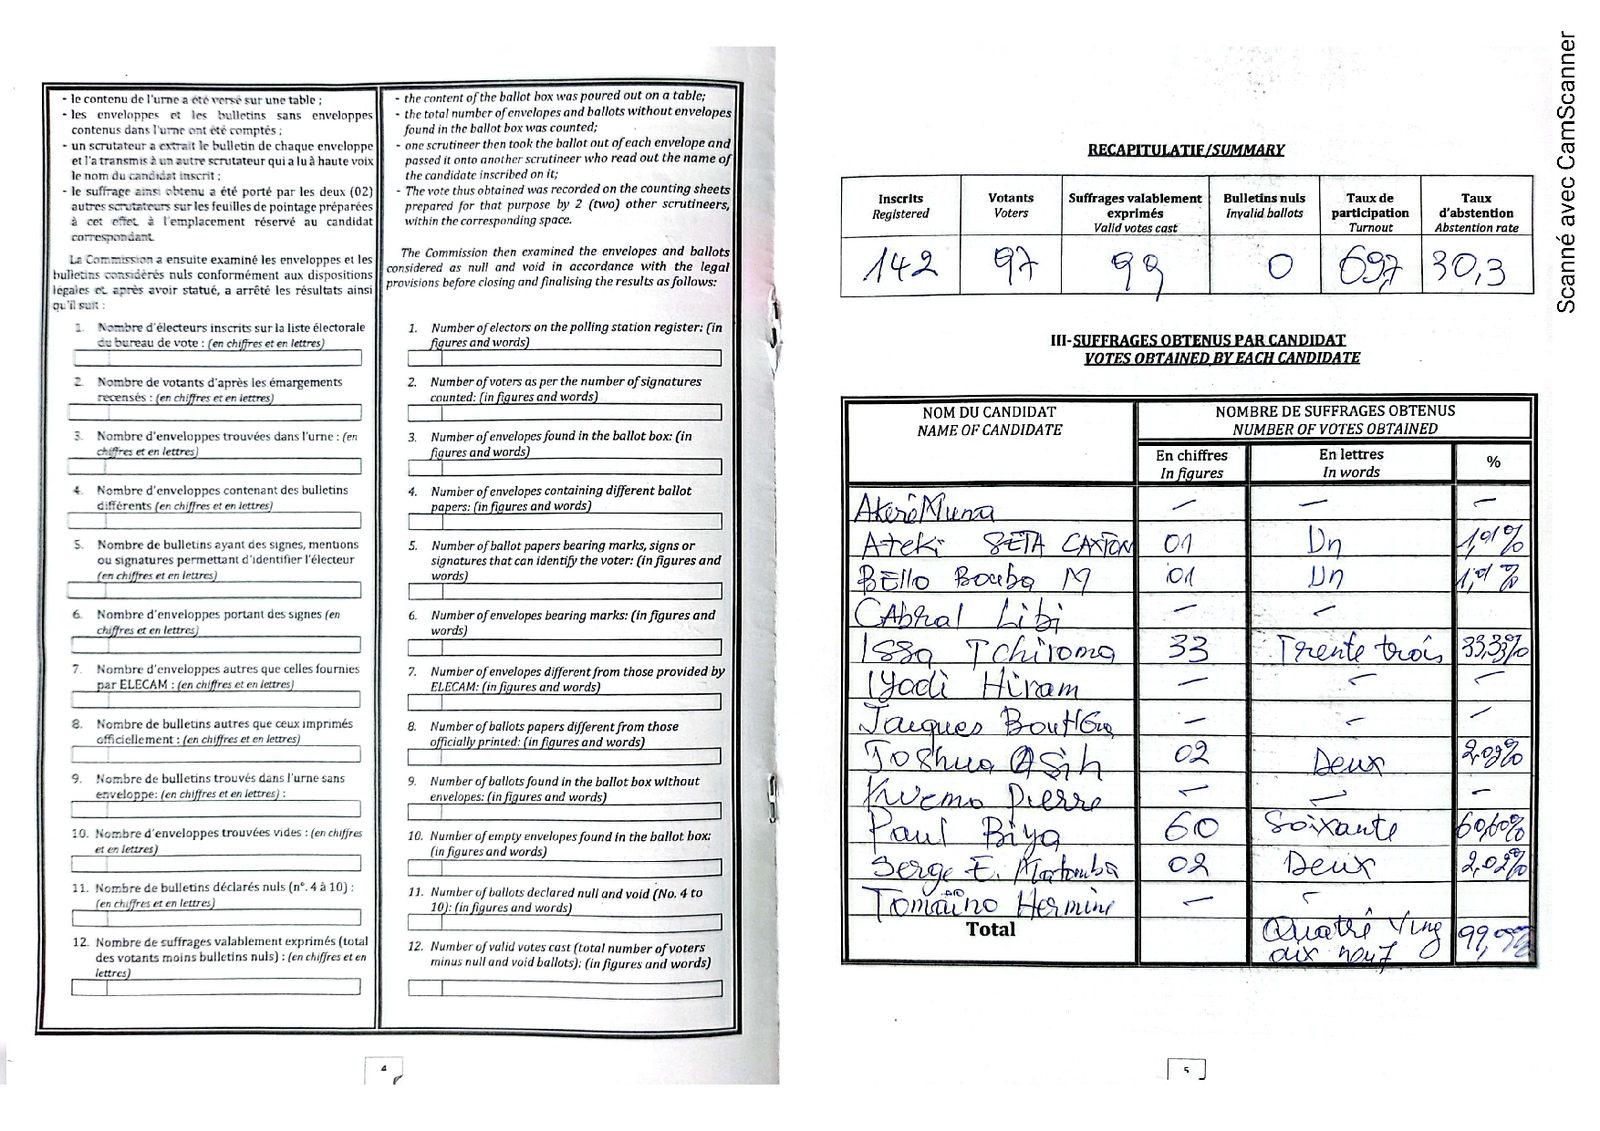 - le contenu de l'urne a été versé sur une table ;
- les enveloppes et les bulletins sans enveloppes
contenus dans l'urne ont été comptés ;
- un scrutateur a extrait le bulletin de chaque enveloppe
et l'a transmis à un autre scrutateur qui a lu à haute voix
le nom du candidat inscrit ;
- le suffrage ainsi obtenu a été porté par les deux (02)
autres scrutateurs sur les feuilles de pointage préparées
à cet effet à l'emplacement réservé au candidat
correspondant.
La Commission a ensuite examiné les enveloppes et les
bulletins considérés nuls conformément aux dispositions
légales et après avoir statué, a arrêté les résultats ainsi
qu'il suit :
1. Nombre d'électeurs inscrits sur la liste électorale
du bureau de vote : (en chiffres et en lettres)
2. Nombre de votants d'après les émargements
recensés : (en chiffres et en lettres)
3. Nombre d'enveloppes trouvées dans l'urne : (en
chiffres et en lettres)
4. Nombre d'enveloppes contenant des bulletins
différents (en chiffres et en lettres)
5. Nombre de bulletins ayant des signes, mentions
ou signatures permettant d'identifier l'électeur
(en chiffres et en lettres)
6. Nombre d'enveloppes portant des signes (en
chiffres et en lettres)
7. Nombre d'enveloppes autres que celles fournies
par ELECAM : (en chiffres et en lettres)
8. Nombre de bulletins autres que ceux imprimés
officiellement : (en chiffres et en lettres)
9. Nombre de bulletins trouvés dans l'urne sans
enveloppe: (en chiffres et en lettres) :
10. Nombre d'enveloppes trouvées vides : (en chiffres
et en lettres)
11. Nombre de bulletins déclarés nuls (n°. 4 à 10) :
(en chiffres et en lettres)
12. Nombre de suffrages valablement exprimés (total
des votants moins bulletins nuls) : (en chiffres et en
lettres)
- the content of the ballot box was poured out on a table;
- the total number of envelopes and ballots without envelopes
found in the ballot box was counted;
- one scrutineer then took the ballot out of each envelope and
passed it onto another scrutineer who read out the name of
the candidate inscribed on it;
- The vote thus obtained was recorded on the counting sheets
prepared for that purpose by 2 (two) other scrutineers,
within the corresponding space.
The Commission then examined the envelopes and ballots
considered as null and void in accordance with the legal
provisions before closing and finalising the results as follows:
1. Number of electors on the polling station register: (in
figures and words)
2. Number of voters as per the number of signatures
counted: (in figures and words)
3. Number of envelopes found in the ballot box: (in
figures and words)
4. Number of envelopes containing different ballot
papers: (in figures and words)
5. Number of ballot papers bearing marks, signs or
signatures that can identify the voter: (in figures and
words)
6. Number of envelopes bearing marks: (in figures and
words)
7. Number of envelopes different from those provided by
ELECAM: (in figures and words)
8. Number of ballots papers different from those
officially printed: (in figures and words)
9. Number of ballots found in the ballot box without
envelopes: (in figures and words)
10. Number of empty envelopes found in the ballot box:
(in figures and words)
11. Number of ballots declared null and void (No. 4 to
10): (in figures and words)
12. Number of valid votes cast (total number of voters
minus null and void ballots): (in figures and words)
4
RECAPITULATIF/SUMMARY
Inscrits Votants Suffrages valablement Bulletins nuls Taux de Taux
Registered Voters exprimés Invalid ballots participation d'abstention
Valid votes cast Turnout Abstention rate
142 97 99 0 69,7 30,3
III-SUFFRAGES OBTENUS PAR CANDIDAT
VOTES OBTAINED BY EACH CANDIDATE
NOM DU CANDIDAT NOMBRE DE SUFFRAGES OBTENUS
NAME OF CANDIDATE NUMBER OF VOTES OBTAINED
En chiffres En lettres %
In figures In words
Akere Muna — — —
Ateki SETA CAXTON 01 Un 1,01%
BEllo Bouba M 01 Un 1,01%
CAbral Libi — —
Issa Tchiroma 33 Trente trois 33,33%
Iyodi Hiram — — —
Jacques Bou — — —
Joshua Osih 02 Deux 2,02%
Kwemo Pierre — — —
Paul Biya 60 Soixante 60,60%
Serge E. Matomba 02 Deux 2,02%
Tomaïno Hermine — —
Total Quatre Ving
aux neuf 99,99%
5
Scanné avec CamScanner